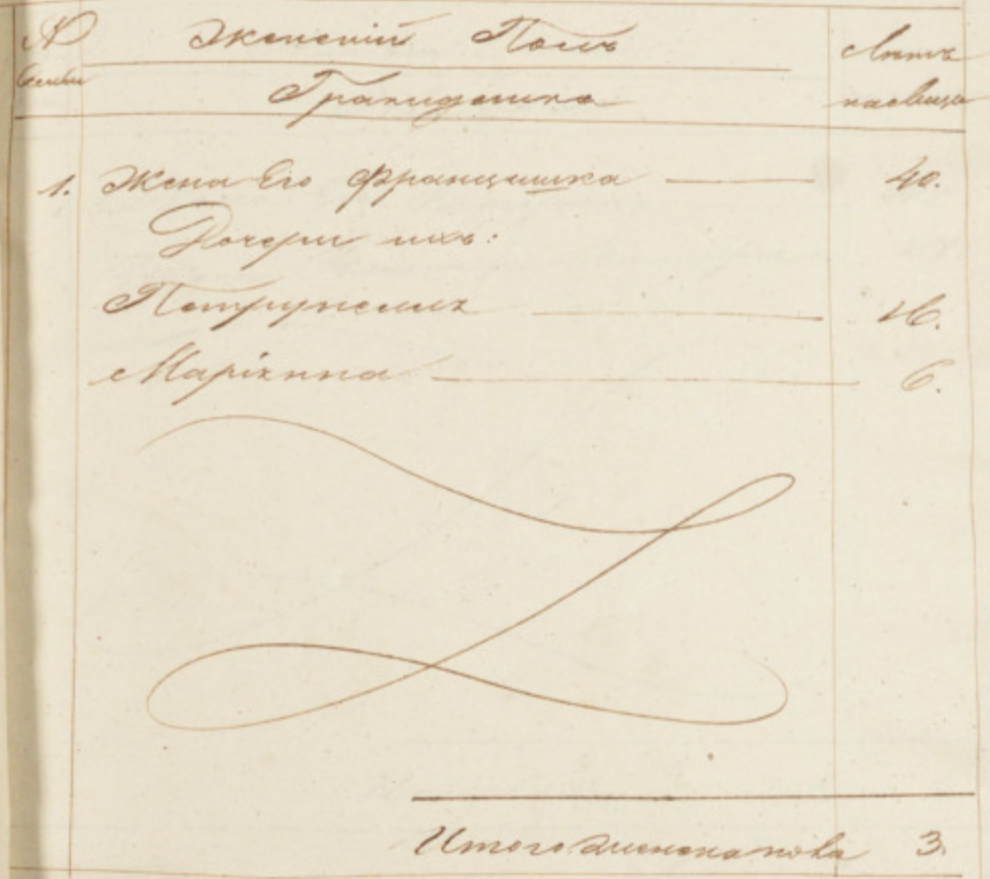 № Женскій Полъ Лѣта
Семьи Гражданка на лицо
1. Жена Его Францишка 40.
Дочери ихъ:
Петрунеля 16.
Маріянна 6.
Итого женска пола 3.